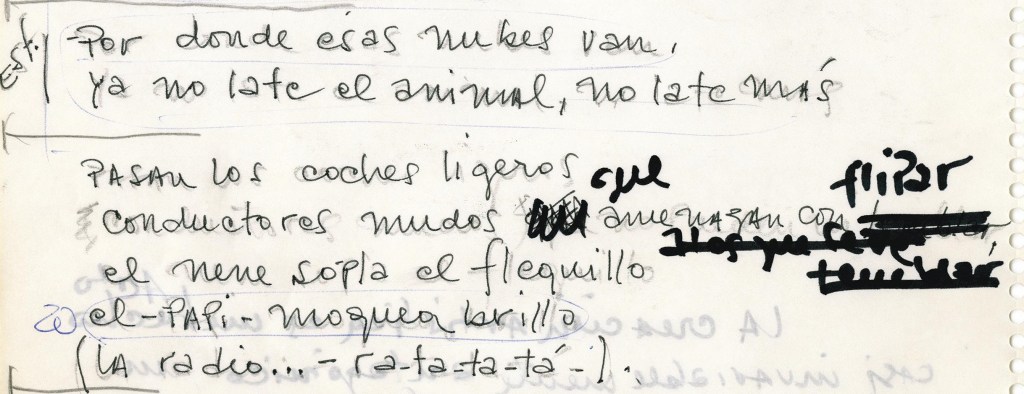 Est.
-Por donde esas nubes van,
ya no late el animal, no late más
PASAN LOS coches ligeros
conductores mudos que amenazan con flipar
el nene sopla el flequillo
el-PAPi-moquea brillo
(LA radio...- ra-ta-ta-tá-).